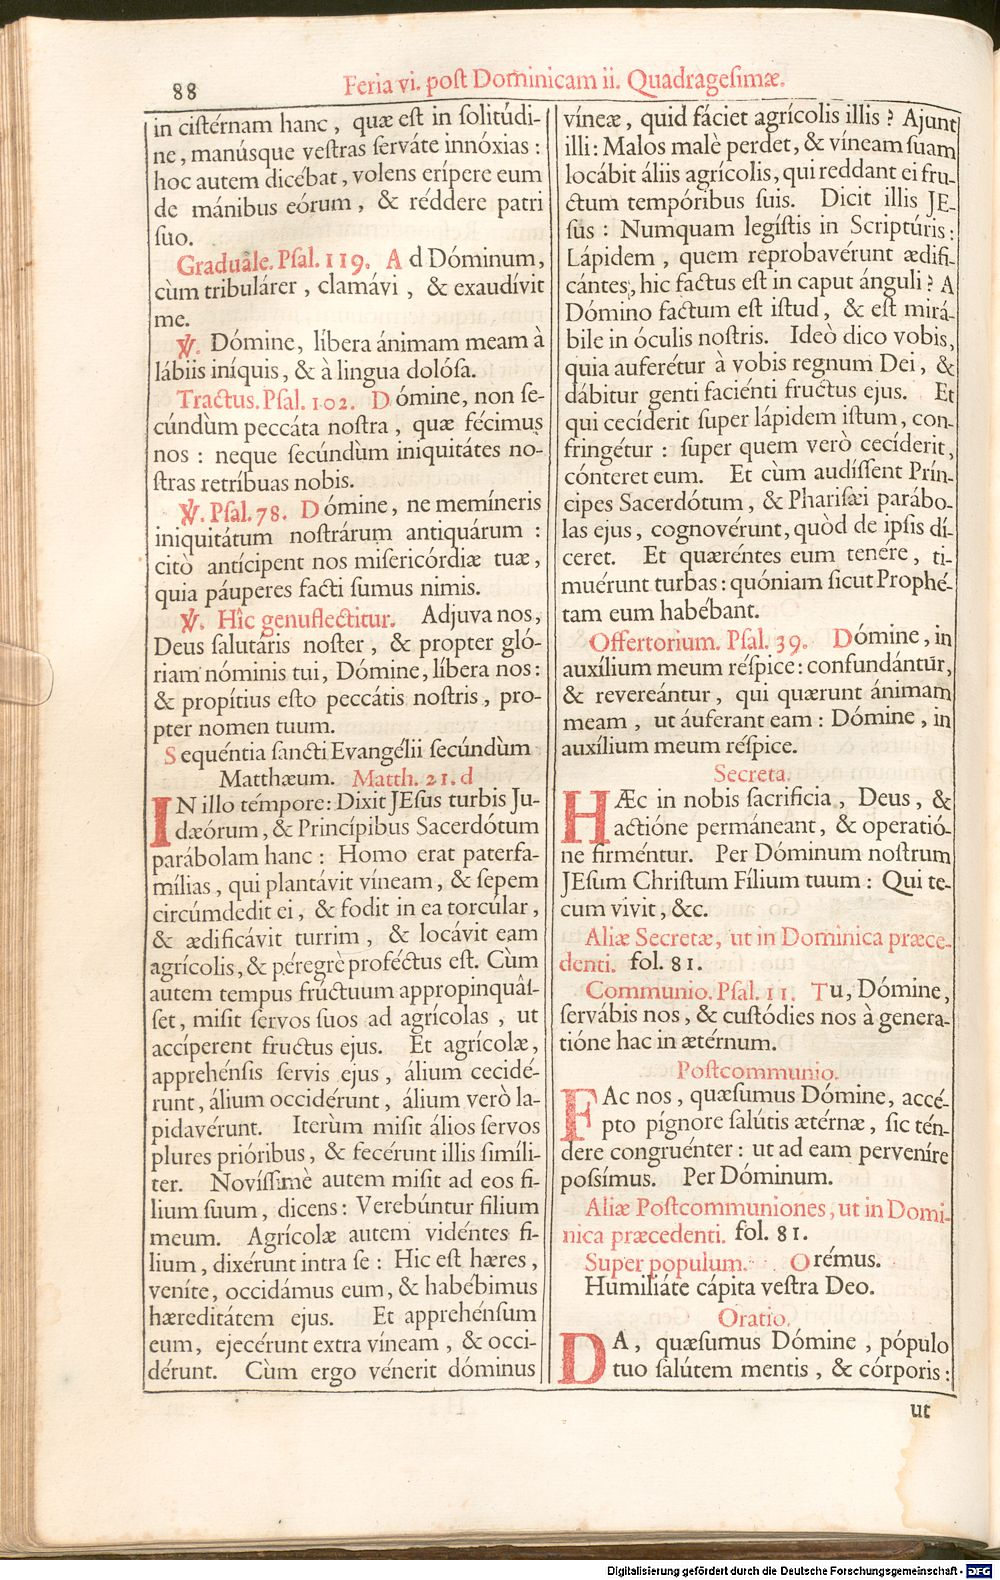 88
Feria vi. post Dominicam ii. Quadragesimæ.
in cistérnam hanc , quæ est in solitúdi-
ne, manúsque vestras serváte innóxias :
hoc autem dicébat, volens erípere eum
de mánibus eórum , & réddere patri
suo.
Graduále. Psal. 119. Ad Dóminum,
cùm tribulárer , clamávi , & exaudívit
me.
℣. Dómine, líbera ánimam meam à
lábiis iníquis, & à lingua dolósa.
Tractus. Psal. 102. Dómine, non se-
cúndùm peccáta nostra , quæ fécimus
nos : neque secúndùm iniquitátes no-
stras retríbuas nobis.
℣. Psal. 78. Dómine, ne memíneris
iniquitátum nostrárum antiquárum :
citò antícipent nos misericórdiæ tuæ,
quia páuperes facti sumus nimis.
℣. Hîc genuflectitur. Adjuva nos,
Deus salutáris noster , & propter gló-
riam nóminis tui, Dómine, líbera nos:
& propítius esto peccátis nostris , pro-
pter nomen tuum.
Sequéntia sancti Evangélii secúndùm
Matthæum. Matth. 21. d
IN illo témpore: Dixit JEsus turbis Ju-
dæórum, & Princípibus Sacerdótum
parábolam hanc : Homo erat paterfa-
mílias , qui plantávit víneam , & sepem
circúmdedit ei , & fodit in ea torcúlar ,
& ædificávit turrim , & locávit eam
agrícolis, & péregrè proféctus est. Cùm
autem tempus frúctuum appropinquâs-
set, misit servos suos ad agrícolas , ut
accíperent fructus ejus. Et agrícolæ,
apprehénsis servis ejus , álium cecidé-
runt, álium occidérunt , álium verò la-
pidavérunt. Iterùm misit álios servos
plures prióribus , & fecérunt illis simíli-
ter. Novíssimè autem misit ad eos fi-
lium suum , dicens : Verebúntur filium
meum. Agrícolæ autem vidéntes fi-
lium , dixérunt intra se : Hic est hæres ,
veníte, occidámus eum, & habébimus
hæreditátem ejus. Et apprehénsum
eum, ejecérunt extra víneam , & occi-
dérunt. Cùm ergo vénerit dóminus
víneæ, quid fáciet agrícolis illis ? Ajunt
illi : Malos malè perdet, & víneam suam
locábit áliis agrícolis, qui reddant ei fru-
ctum tempóribus suis. Dicit illis JE-
sus : Numquam legístis in Scriptúris:
Lápidem , quem reprobavérunt ædifi-
cántes, hic factus est in caput ánguli ? A
Dómino factum est istud , & est mirá-
bile in óculis nostris. Ideò dico vobis,
quia auferétur à vobis regnum Dei , &
dábitur genti faciénti fructus ejus. Et
qui cecíderit super lápidem istum, con-
fringétur : super quem verò cecíderit,
cónteret eum. Et cùm audíssent Prín-
cipes Sacerdótum, & Pharisæi parábo-
las ejus, cognovérunt, quòd de ipsis dí-
ceret. Et quæréntes eum tenére, ti-
muérunt turbas: quóniam sicut Prophé-
tam eum habébant.
Offertorium. Psal. 39. Dómine, in
auxílium meum réspice: confundántur,
& revereántur, qui quærunt ánimam
meam , ut áuferant eam : Dómine , in
auxílium meum réspice.
Secreta.
HÆc in nobis sacrificia , Deus , &
actióne permáneant, & operatió-
ne firméntur. Per Dóminum nostrum
JEsum Christum Fílium tuum : Qui te-
cum vivit , &c.
Aliæ Secretæ, ut in Dominica præce-
denti. fol. 81.
Communio. Psal. 11. Tu, Dómine,
servábis nos, & custódies nos à genera-
tióne hac in ætérnum.
Postcommunio.
FAc nos , quæsumus Dómine, accé-
pto pígnore salútis ætérnæ, sic tén-
dere congruénter : ut ad eam perveníre
possímus. Per Dóminum.
Aliæ Postcommuniones, ut in Domi-
nica præcedenti. fol. 81.
Super populum. Orémus.
Humiliáte cápita vestra Deo.
Oratio.
DA, quæsumus Dómine , pópulo
tuo salútem mentis , & córporis :
ut
Digitalisierung gefördert durch die Deutsche Forschungsgemeinschaft - DFG